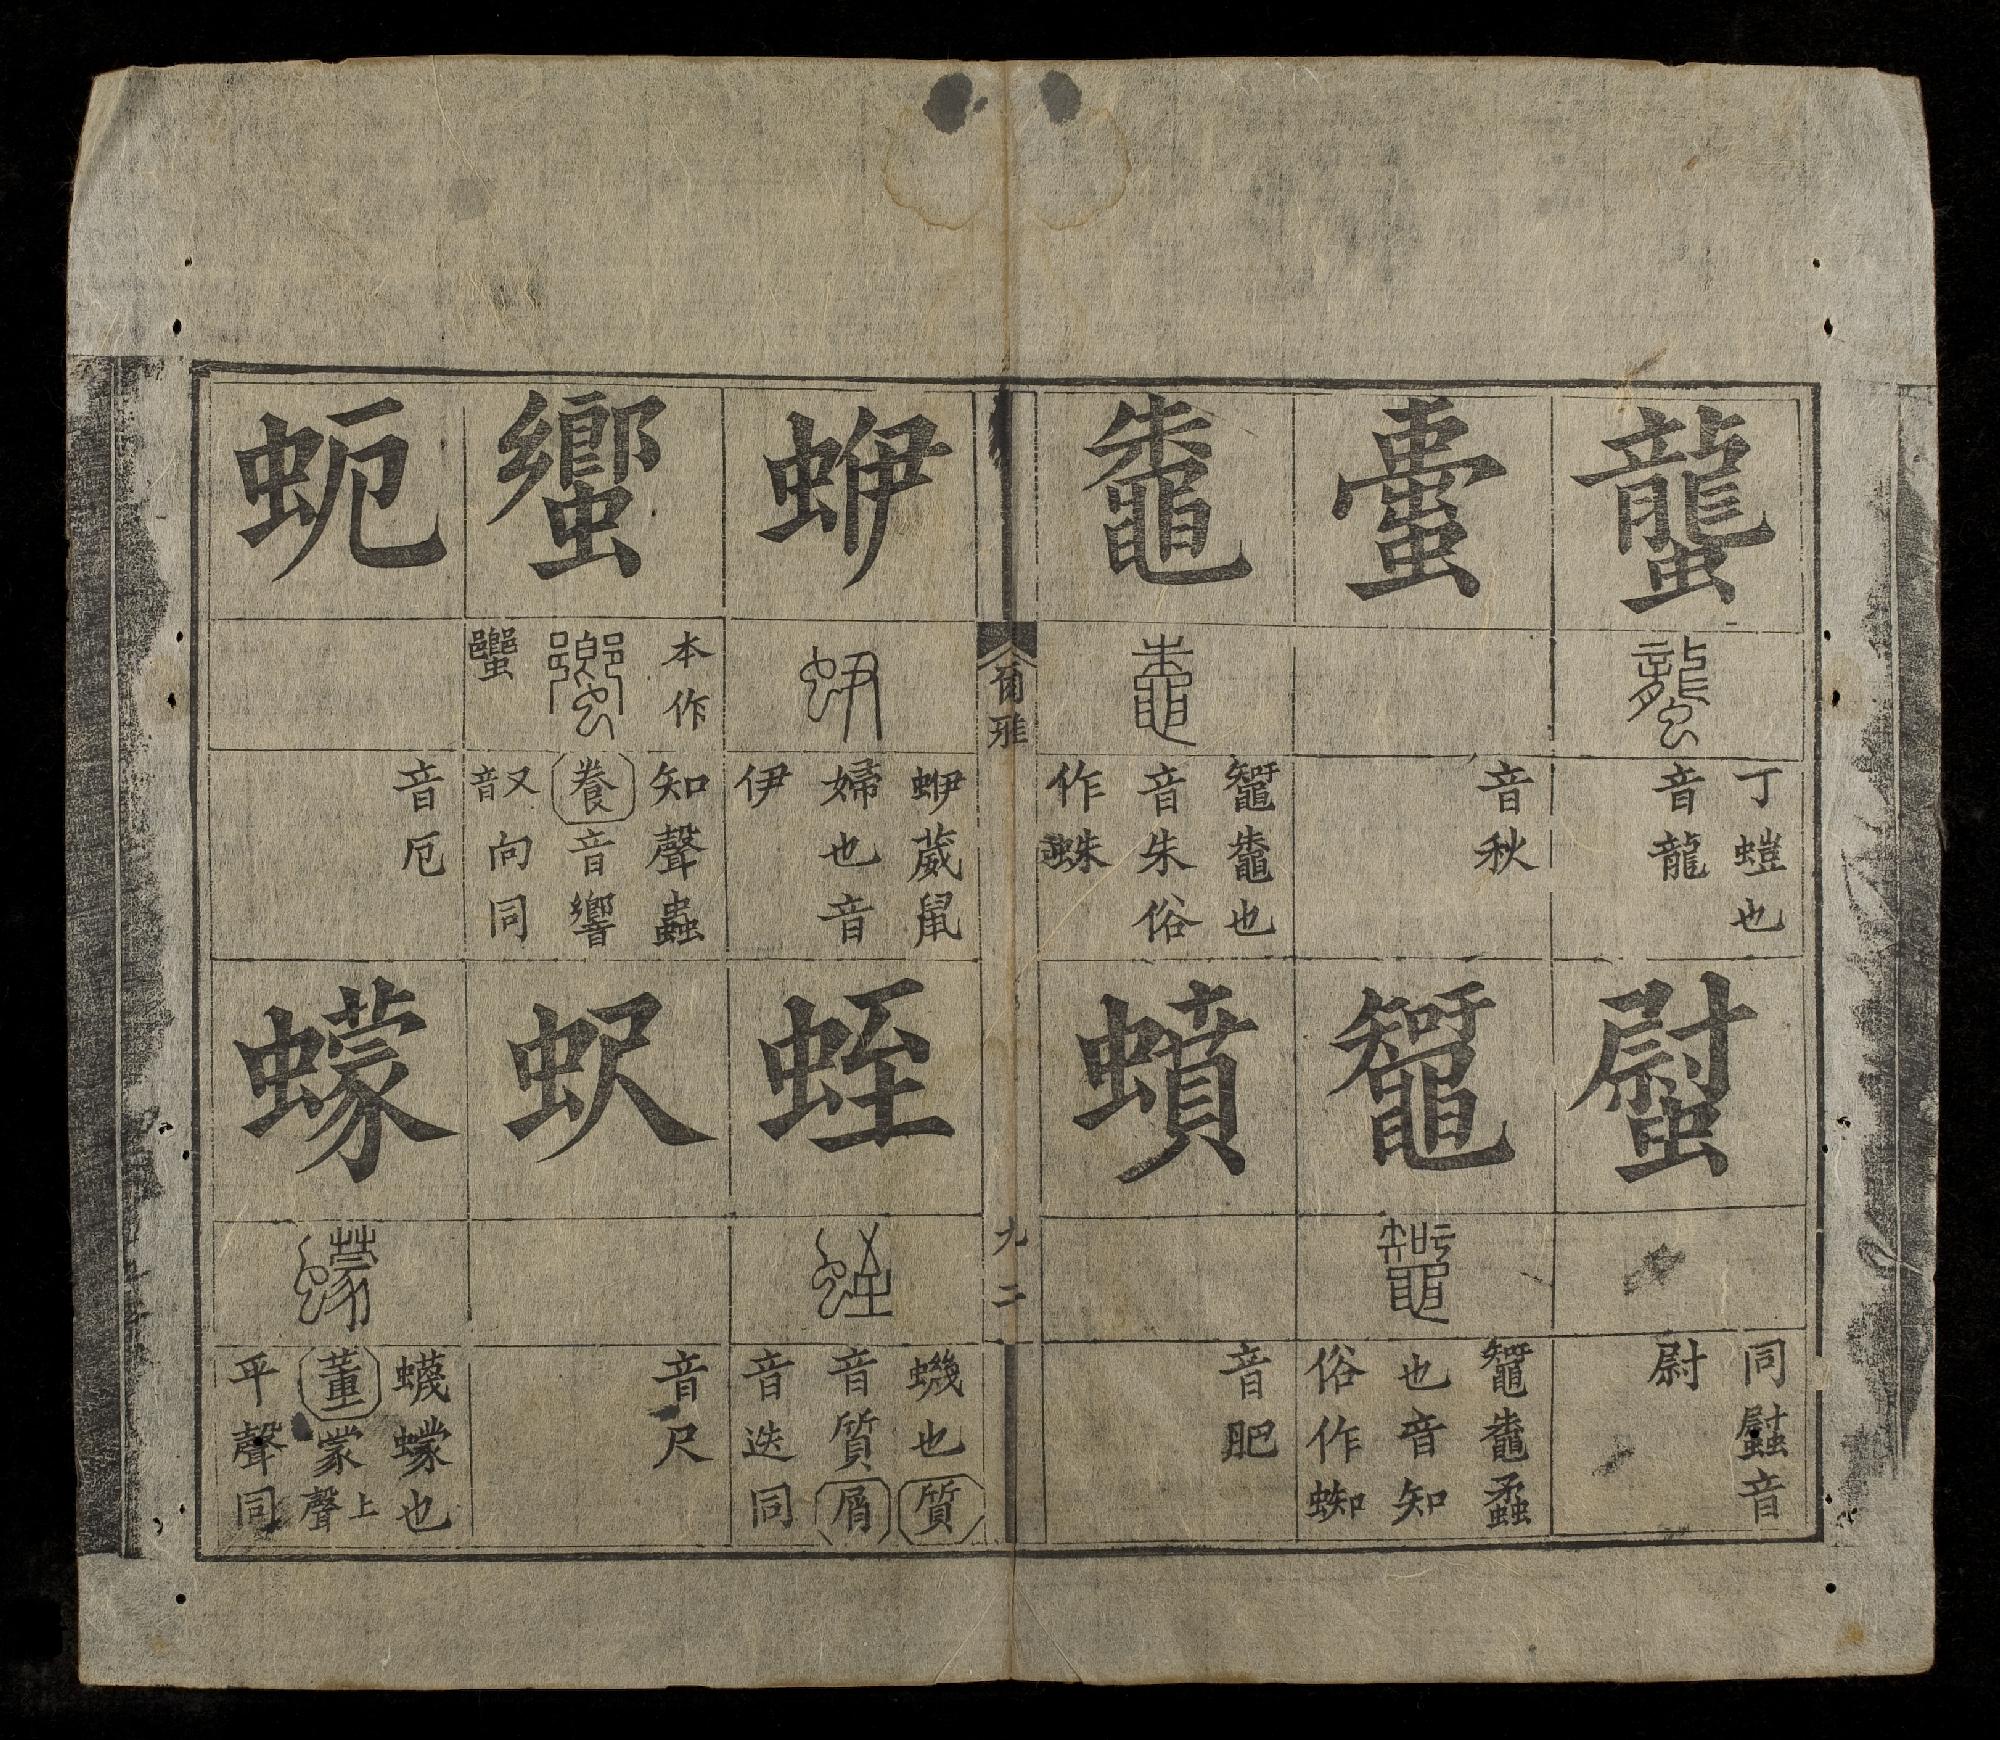 蠪
丁螘也
音龍
螱
同音
尉
蟗
音秋
鼅
鼅鼄蟊
也音知
俗作蜘
鼄
鼅鼄也
音朱俗
作蛛
蟦
音肥
爾雅
九二
蛜
蛜葳鼠
婦也音
伊
蛭
蟣也質
音質屑
音迭同
蠁
本作
蠁
知聲蟲
養音響
又音向同
蚇
音尺
蚅
音厄
蠓
蠛蠓也
董蒙上聲
平聲同